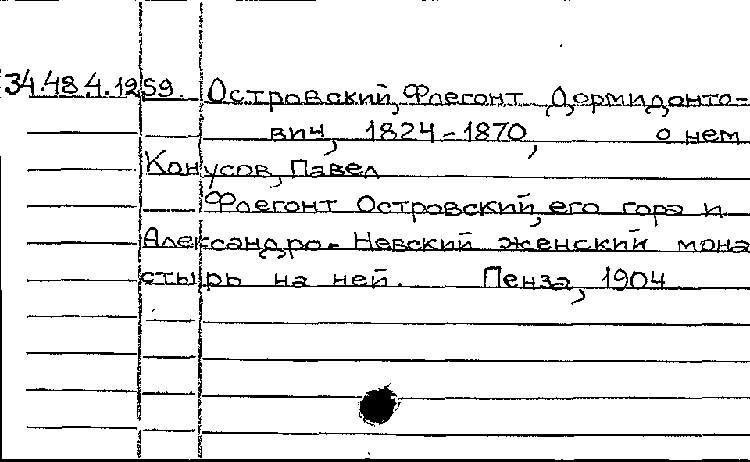 34.48 4.1259. Островский, Флегонт Дормидонто-
вич, 1824-1870, о нем
Конусов, Павел
Флегонт Островский, его гора и
Александро-Невский женский мона
стырь на ней. Пенза, 1904